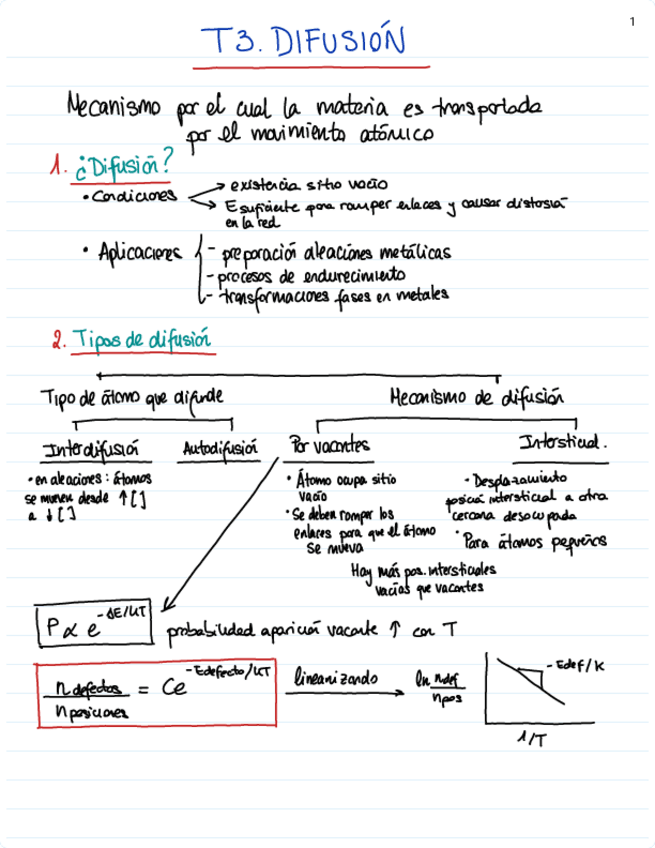 1
T3. DIFUSIÓN
Mecanismo por el cual la materia es transportada
por el movimiento atómico
1. ¿Difusión?
• Condiciones → existencia sitio vacío
→ E suficiente para romper enlaces y causar distorsión
en la red.
• Aplicaciones - preparación aleaciones metálicas
- procesos de endurecimiento
- transformaciones fases en metales
2. Tipos de difusión
Tipo de átomo que difunde
Mecanismo de difusión
Interdifusión
Autodifusión
Por vacantes
Intersticial.
• en aleaciones: átomos
se mueven desde ↑[ ]
a ↓[ ]
• Átomo ocupa sitio
vacío
• Se deben romper los
enlaces para que el átomo
se mueva
• Desplazamiento
posición intersticial a otra
cercana desocupada
• Para átomos pequeños
Hay más pos. intersticiales
vacías que vacantes
P ∝ e^-ΔE/kT
probabilidad aparición vacante ↑ con T
n defectos / n posiciones = Ce^-Edefecto/kT
linealizando
ln ndef / npos
- Edef/k
1/T